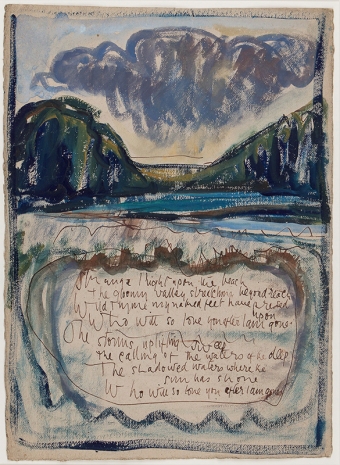 Strange light upon the beach
The gloomy valley stretching beyond reach
Wild thyme my naked feet have pressed
upon
Who will so love you after I am gone
The storms, uplifting
The calling of the waters of the deep
The shadowed waters where the
sun has shone
Who will so love you after I am gone